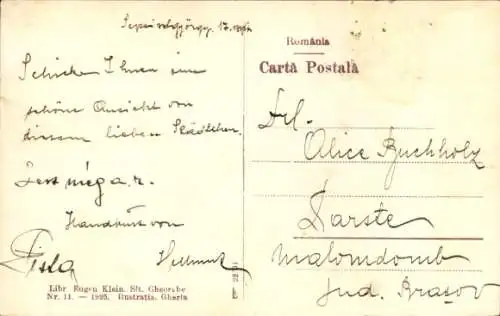 Sepsiszentgyörgy, 17.
Schicken Ihnen eine
schöne Ansicht von
diesem lieben Städtchen.
Handkuss von
Hellmut
Libr Eugen Klein. Sft. Gheorghe
Nr. 11. — 1925. Ilustratia. Gherla
România
Cartă Postală
Frl.
Alice Buchholz
Darste
malomdomb
Jud. Brașov